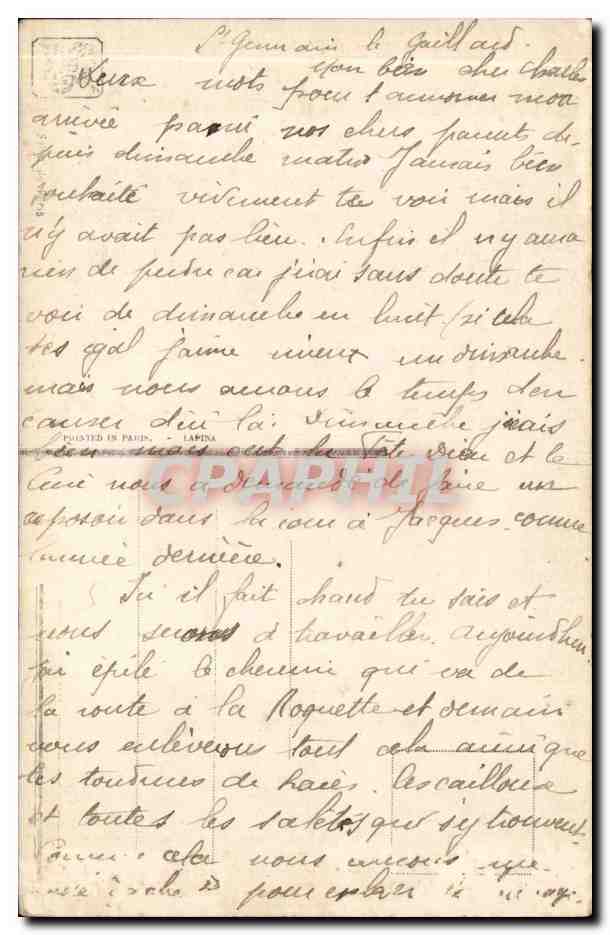 St Germain le Gaillard.
mon bien cher Charles
Deux mots pour t'annoncer mon
arrivée parmi nos chers parents de-
puis dimanche matin J'amais bien
souhaité vivement te voir mais il
n'y avait pas lieu. Enfin il n'y aura
rien de perdu car j'irai sans doute te
voir de dimanche en huit (si cela
t'es égal j'aime mieux un dimanche.
mais nous aurons le temps d'en
causer d'ici là. Dimanche j'irais
PRINTED IN PARIS. - LAPINA
bien mais c'est la Fête Dieu et le
CPAPHIL
Curé nous a demandé de faire un
reposoir dans la cour à Jacques comme
l'année dernière.
Ici il fait chaud tu sais et
nous suons à travailler. aujourd'hui
j'ai épilé le chemin qui va de
la route à la Roquette et demain
nous enlèverons tout cela ainsi que
les tondures de haies. les cailloux
et toutes les saletés qui s'y trouvent.
cela nous aurons une
pour